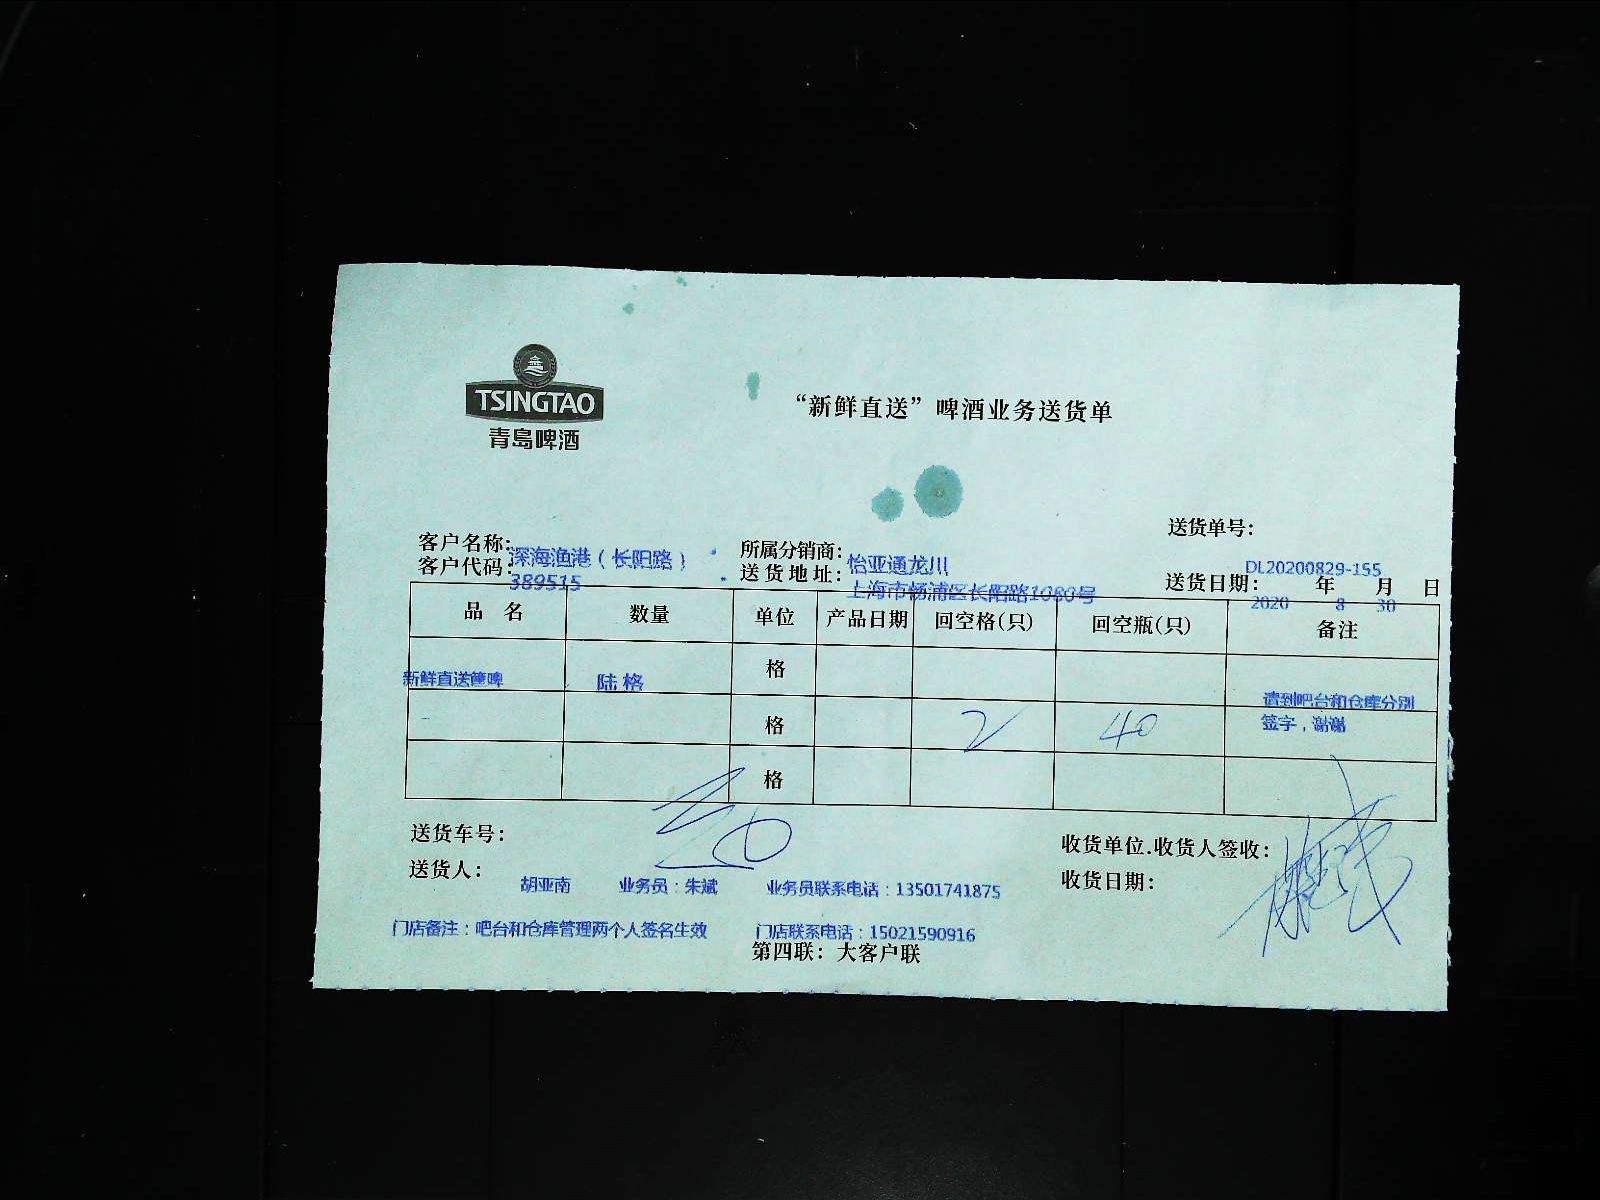 TSINGTAO
青岛啤酒
“新鲜直送”啤酒业务送货单
送货单号：
DL20200829-155
客户名称：深海渔港（长阳路） 所属分销商：怡亚通龙川
客户代码：389515 送货地址：上海市杨浦区长阳路1080号 送货日期：2020年8月30日
品名 数量 单位 产品日期 回空格(只) 回空瓶(只) 备注
新鲜直送筐啤 陆格 格 请到吧台和仓库分别
格 2 40 签字，谢谢
格
送货车号：
收货单位.收货人签收：
送货人：胡亚南 业务员：朱斌 业务员联系电话：13501741875
收货日期：
门店备注：吧台和仓库管理两个人签名生效 门店联系电话：15021590916
第四联：大客户联